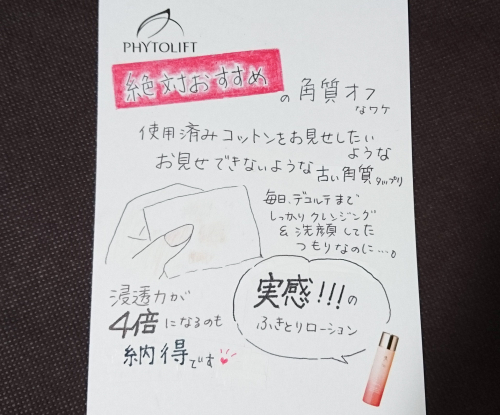 PHYTOLIFT
絶対おすすめ の 角質オフ
なワケ
使用済みコットンをお見せしたい
ような
お見せできないような 古い角質 タップリ
毎日、デコルテまで
しっかりクレンジング
& 洗顔してた
つもりなのに…。
浸透力が
4倍になるのも
納得です
実感!!!の
ふきとりローション